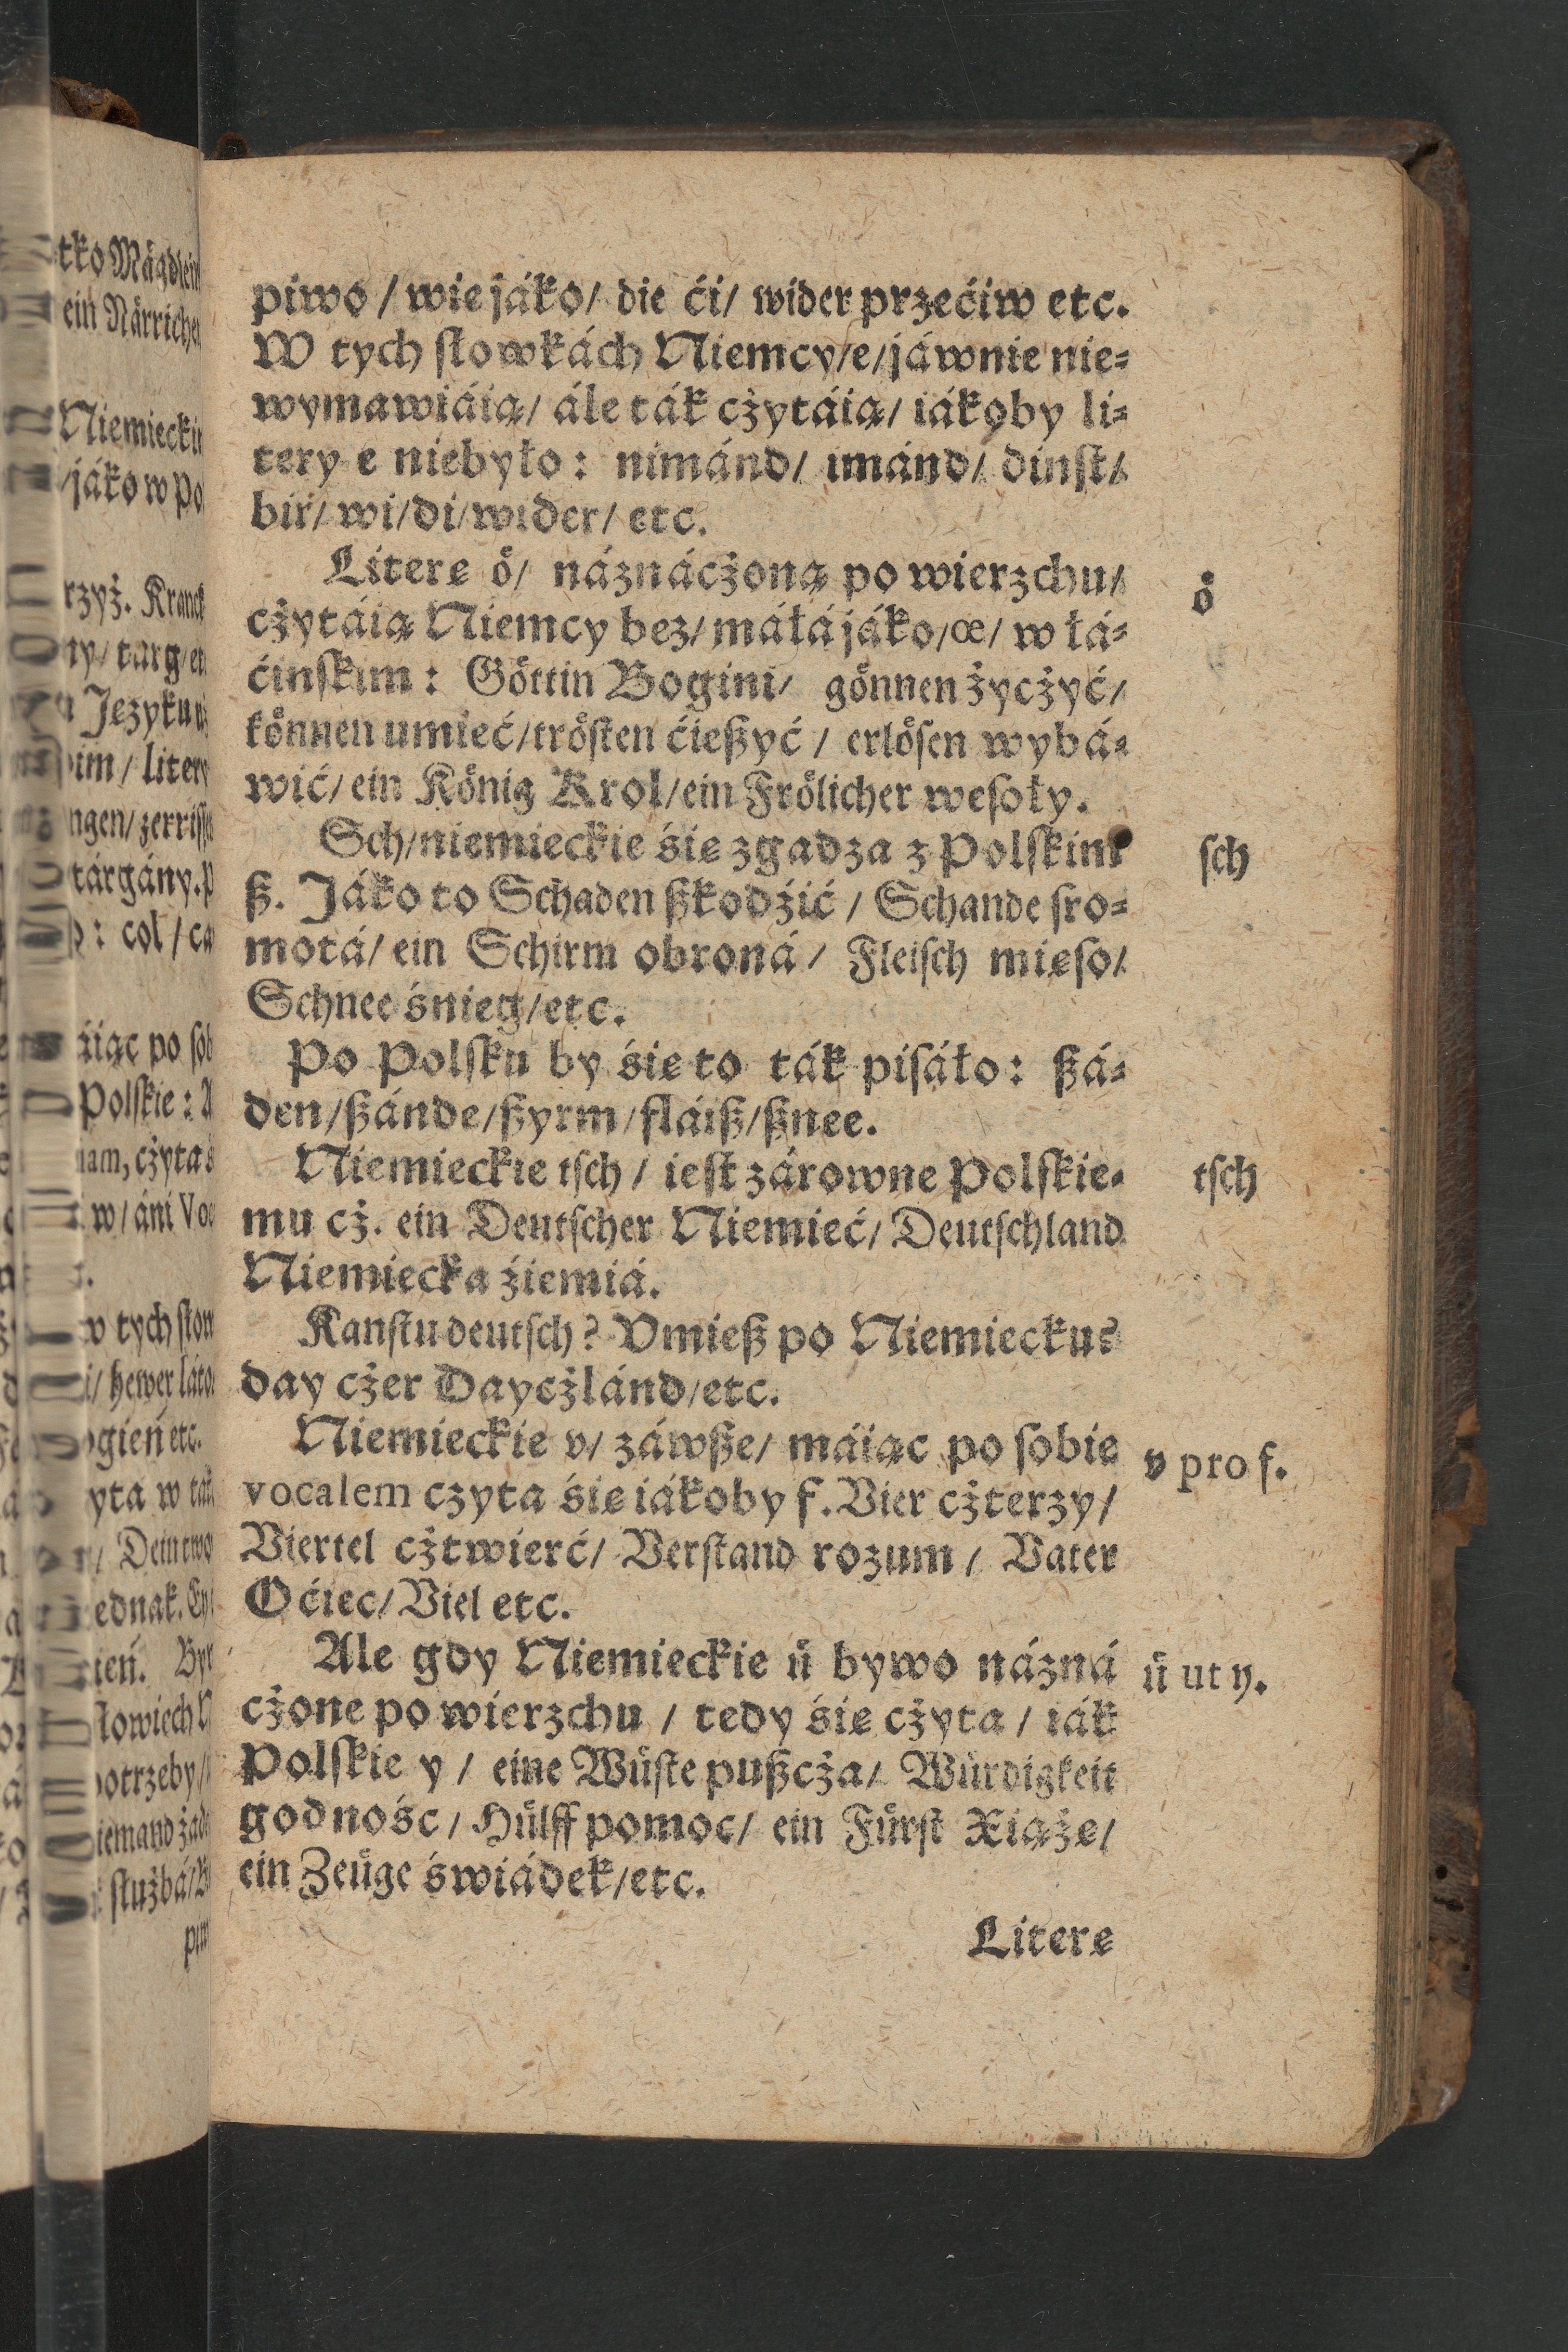 piwo / wie jáko / die ći / wider przećiw etc.
W tych słowkách Niemcy / e / jáwnie nie⸗
wymawiáią / ále ták cżytáią / iákoby li⸗
tery e niebyło : nimánd / imánd / dinſt /
bir / wi / di / wider / etc.
Literę oͤ / náznácżoną po wierzchu /
cżytáią Niemcy bez / máłá jáko / œ / w łá⸗
ćinſkim : Goͤttin Bogini / goͤnnen życżyć /
koͤnnen umieć / troͤſten ćießyć / erloͤſen wybá⸗
wić / ein Koͤnig Krol / ein Froͤlicher weſoły.
oͤ
Sch / niemieckie śię zgadza z Polſkim
ß. Jáko to Schaden ßkodźić / Schande ſro⸗
motá / ein Schirm obroná / Fleiſch mięſo /
Schnee śnieg / etc.
ſch
Po Polſku by śię to ták piſáło : ßá⸗
den / ßánde / ßyrm / fláiß / ßnee.
Niemieckie tſch / ieſt zárowne Polſkie⸗
mu cż. ein Deutſcher Niemieć / Deutſchland
Niemiecka źiemiá.
tſch
Kanſtu deutſch? Vmieß po Niemiecku?
day cżer Daycżlánd / etc.
Niemieckie v / záwße / máiąc po ſobie
vocalem czyta śię iákoby f. Vier cżterzy /
Viertel cżtwierć / Verſtand rozum / Vater
Oćiec / Viel etc.
v pro f.
Ale gdy Niemieckie uͤ bywo názná
cżone po wierzchu / tedy śię cżyta / iák
Polſkie y / eine Wuͤſte pußcża / Wuͤrdigkeit
godnośc / Huͤlff pomoc / ein Fuͤrſt Xiąże /
ein Zeuͤge świádek / etc.
uͤ ut y.
Literę